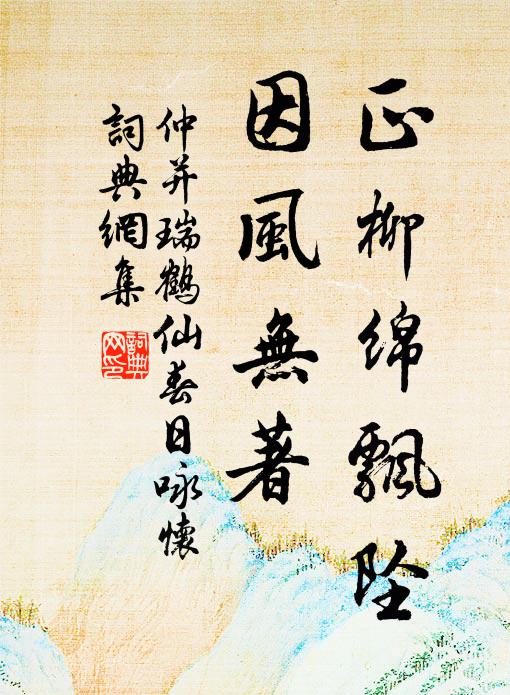 正柳綿飄墜
因風無著
仲并瑞鶴仙春日咏懷
詞典網集
詞典
网印